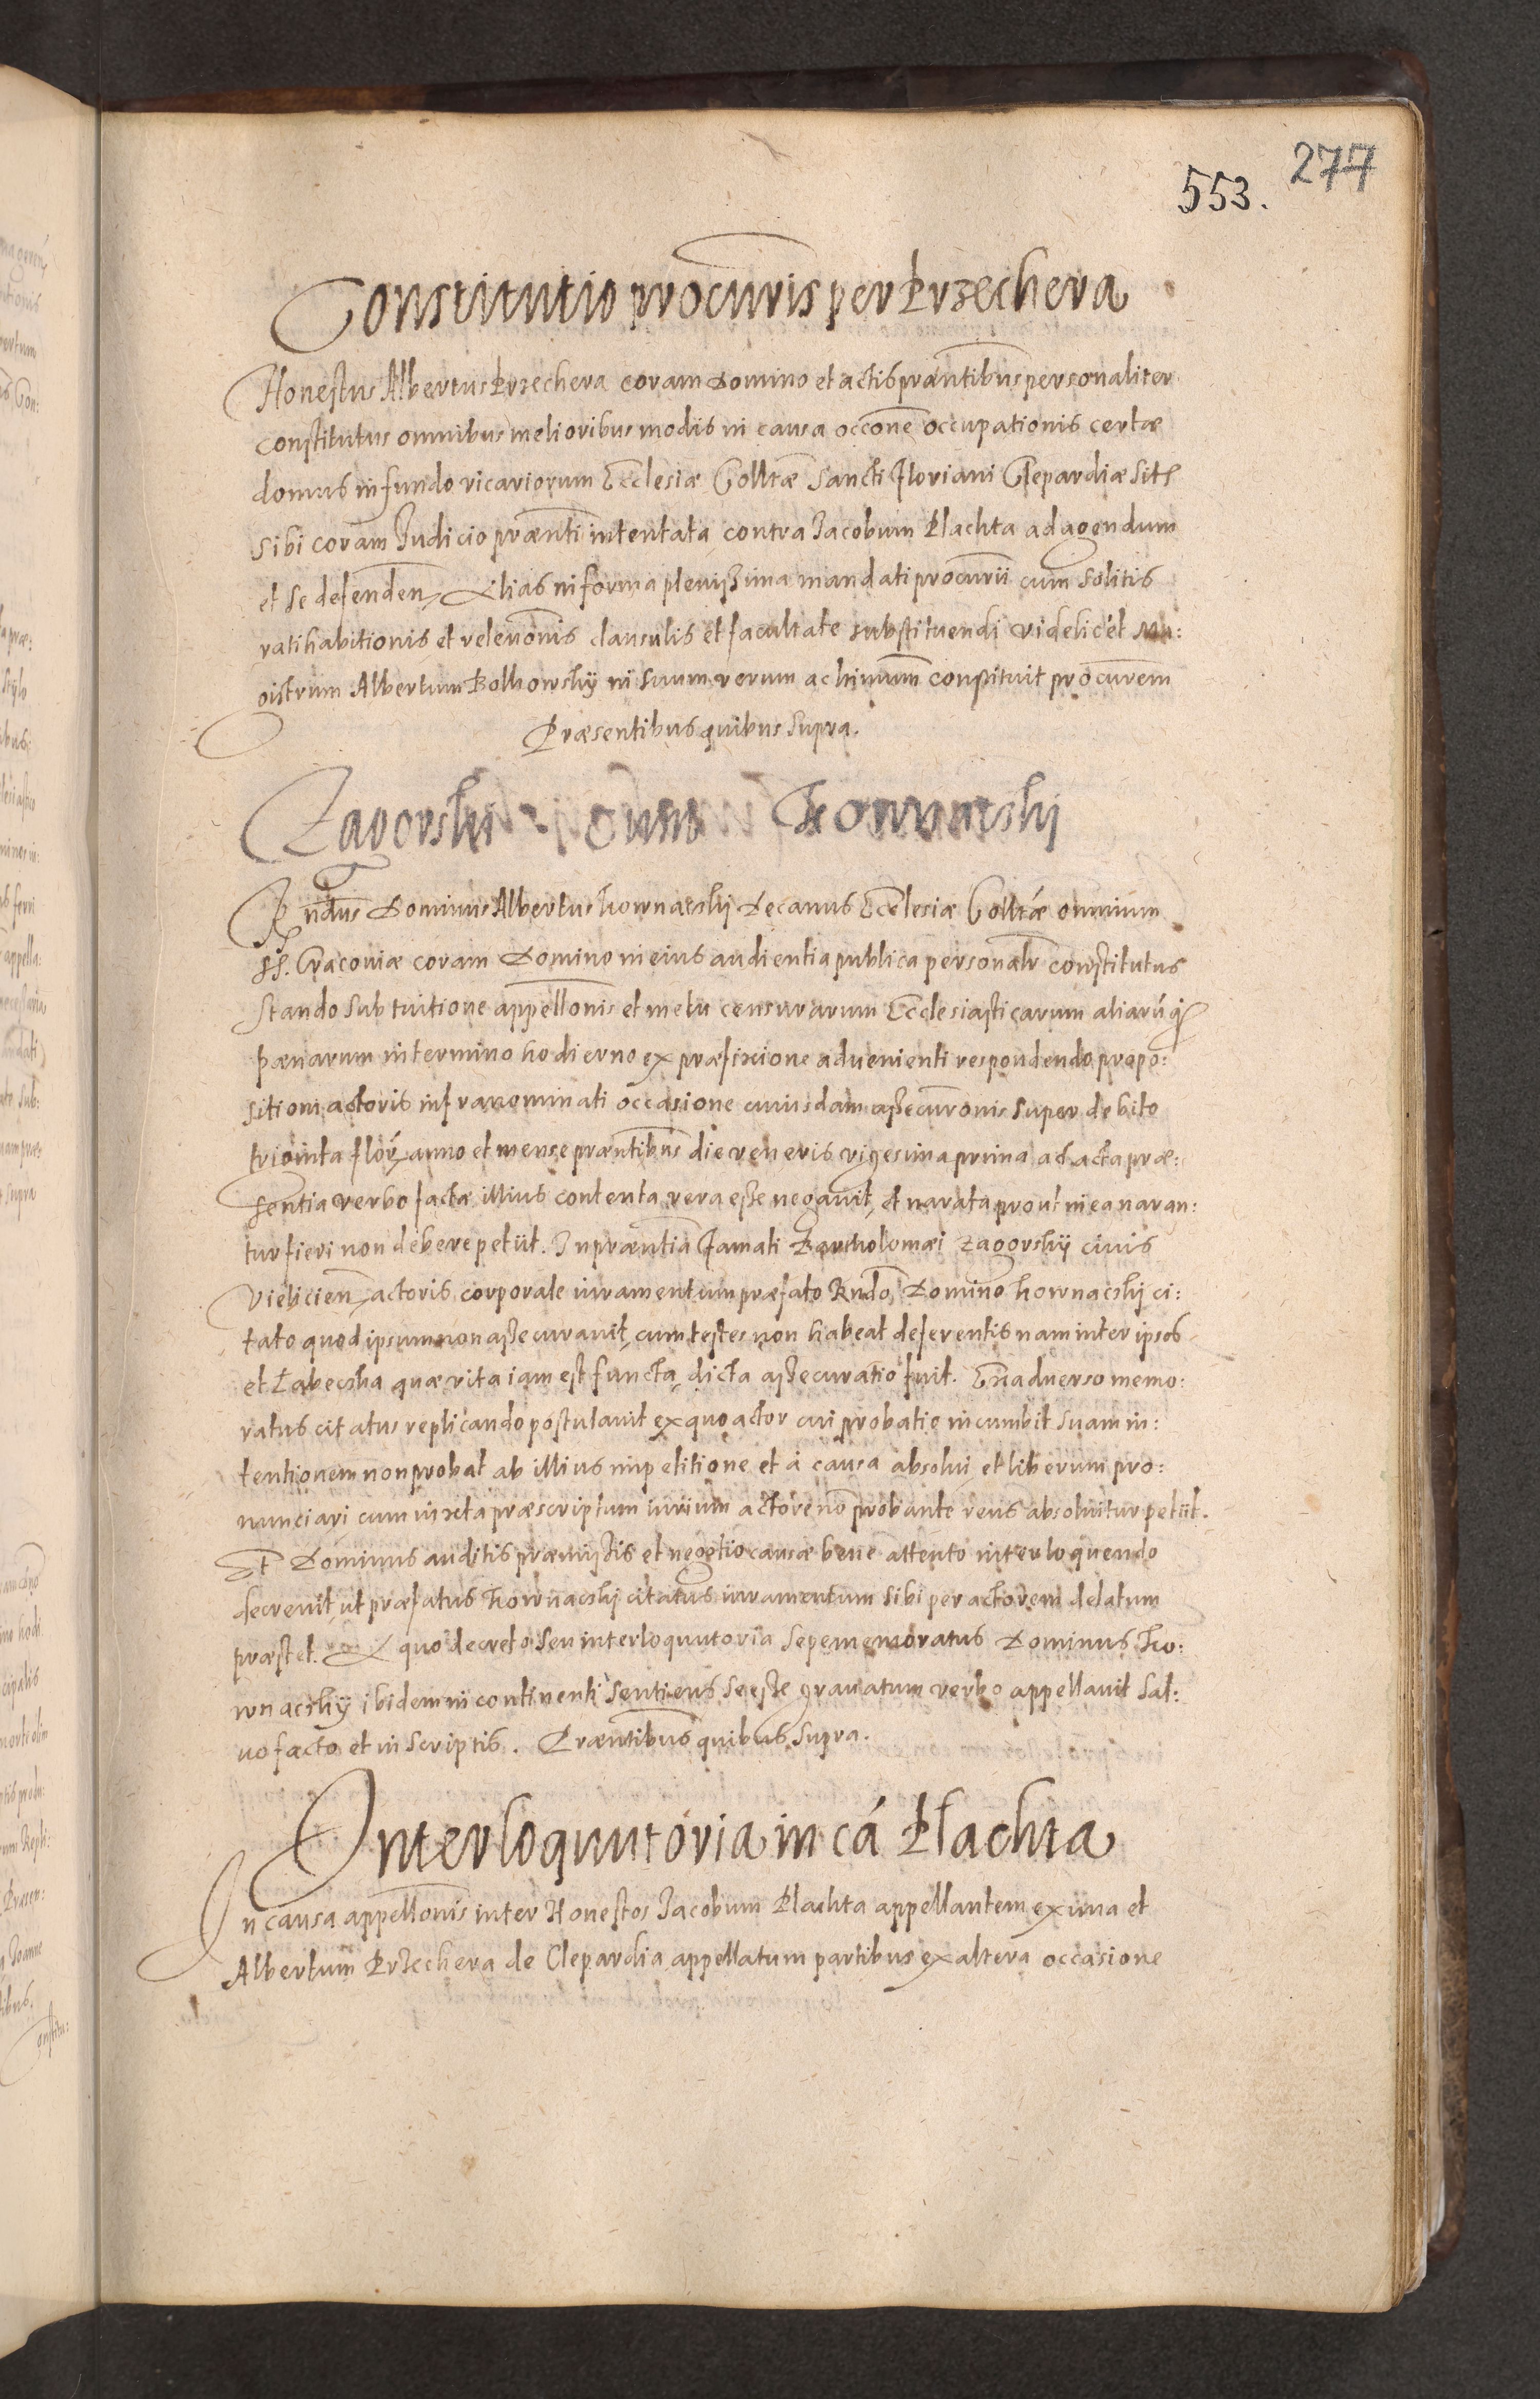 277
553.
Constitutio procuris per Przechera
Honestus Albertus Przechera coram Domino et actis præntibus personaliter
constitutus omnibus melioribus modis in causa occone occupationis certæ
domus in fundo vicariorum Ecclesiæ Colltæ Sancti Floriani Clepardiæ sitæ
sibi coram Judicio prænti intentata contra Jacobum Plachta ad agendum
et se defenden Alias in forma plenißima mandati procurii cum solitis
ratihabitionis et relevonis clausulis et facultate substituendi videlicet Ma:
gistrum Albertum Bolkowsky in suum verum ac ltimum constituit procurem
Præsentibus quibus supra.
Zagorski cum Kownatski
Rndus Dominus Albertus Kownatskij Decanus Ecclesiæ Colltæ omnium
SS. Cracoviæ coram Domino in eius audientia publica personalr constitutus
stando sub tuitione appellonis et metu censurarum Ecclesiasticarum aliarúq
pænarum in termino hodierno ex præfixione advenienti respondendo propo:
sitioni actoris infranominati occasione cuiusdam aßecuronis super debito
triginta flor anno et mense præntibus die veneris vigesima prima ad acta præ:
sentia verbo factæ illius contenta vera eße negavit, et narata prout in ea naran:
tur fieri non debere petiit. In præntia Famati Bartholomæi Zagorsky civis
Vielicien actoris corporale iuramentum præfato Rndo Domino Kownacskj ci:
tato quod ipsum non aßecuravit, cum testes non habeat deferentis nam inter ipsos
et Łabecska quæ vita iam est functa, dicta aßecuratio fuit. E adverso memo:
ratus citatus replicando postulavit ex quo actor cui probatio incumbit suam in:
tentionem non probat ab illius impetitione et à causa absolvi et liberum pro:
nunciari cum iuxta præscriptum iurium actore no probante reus absolvitur petiit.
Et Dominus auditis præmissis et negotio causæ bene attento interloquendo
decrevit, ut præfatus Kownacskj citatus iuramentum sibi per actorem delatum
præstet. A quo decreto seu interloquutoria sepememoratus Dominus Ko:
wnacskÿ ibidem in continenti sentiens se eße gravatum verbo appellavit sal:
vo facto et in scriptis. Præntibus quibus supra.
Interloquutoria in cá Plachta
In causa appellonis inter Honestos Jacobum Plachta appellantem ex una et
Albertum Przechera de Clepardia appellatum partibus ex altera occasione